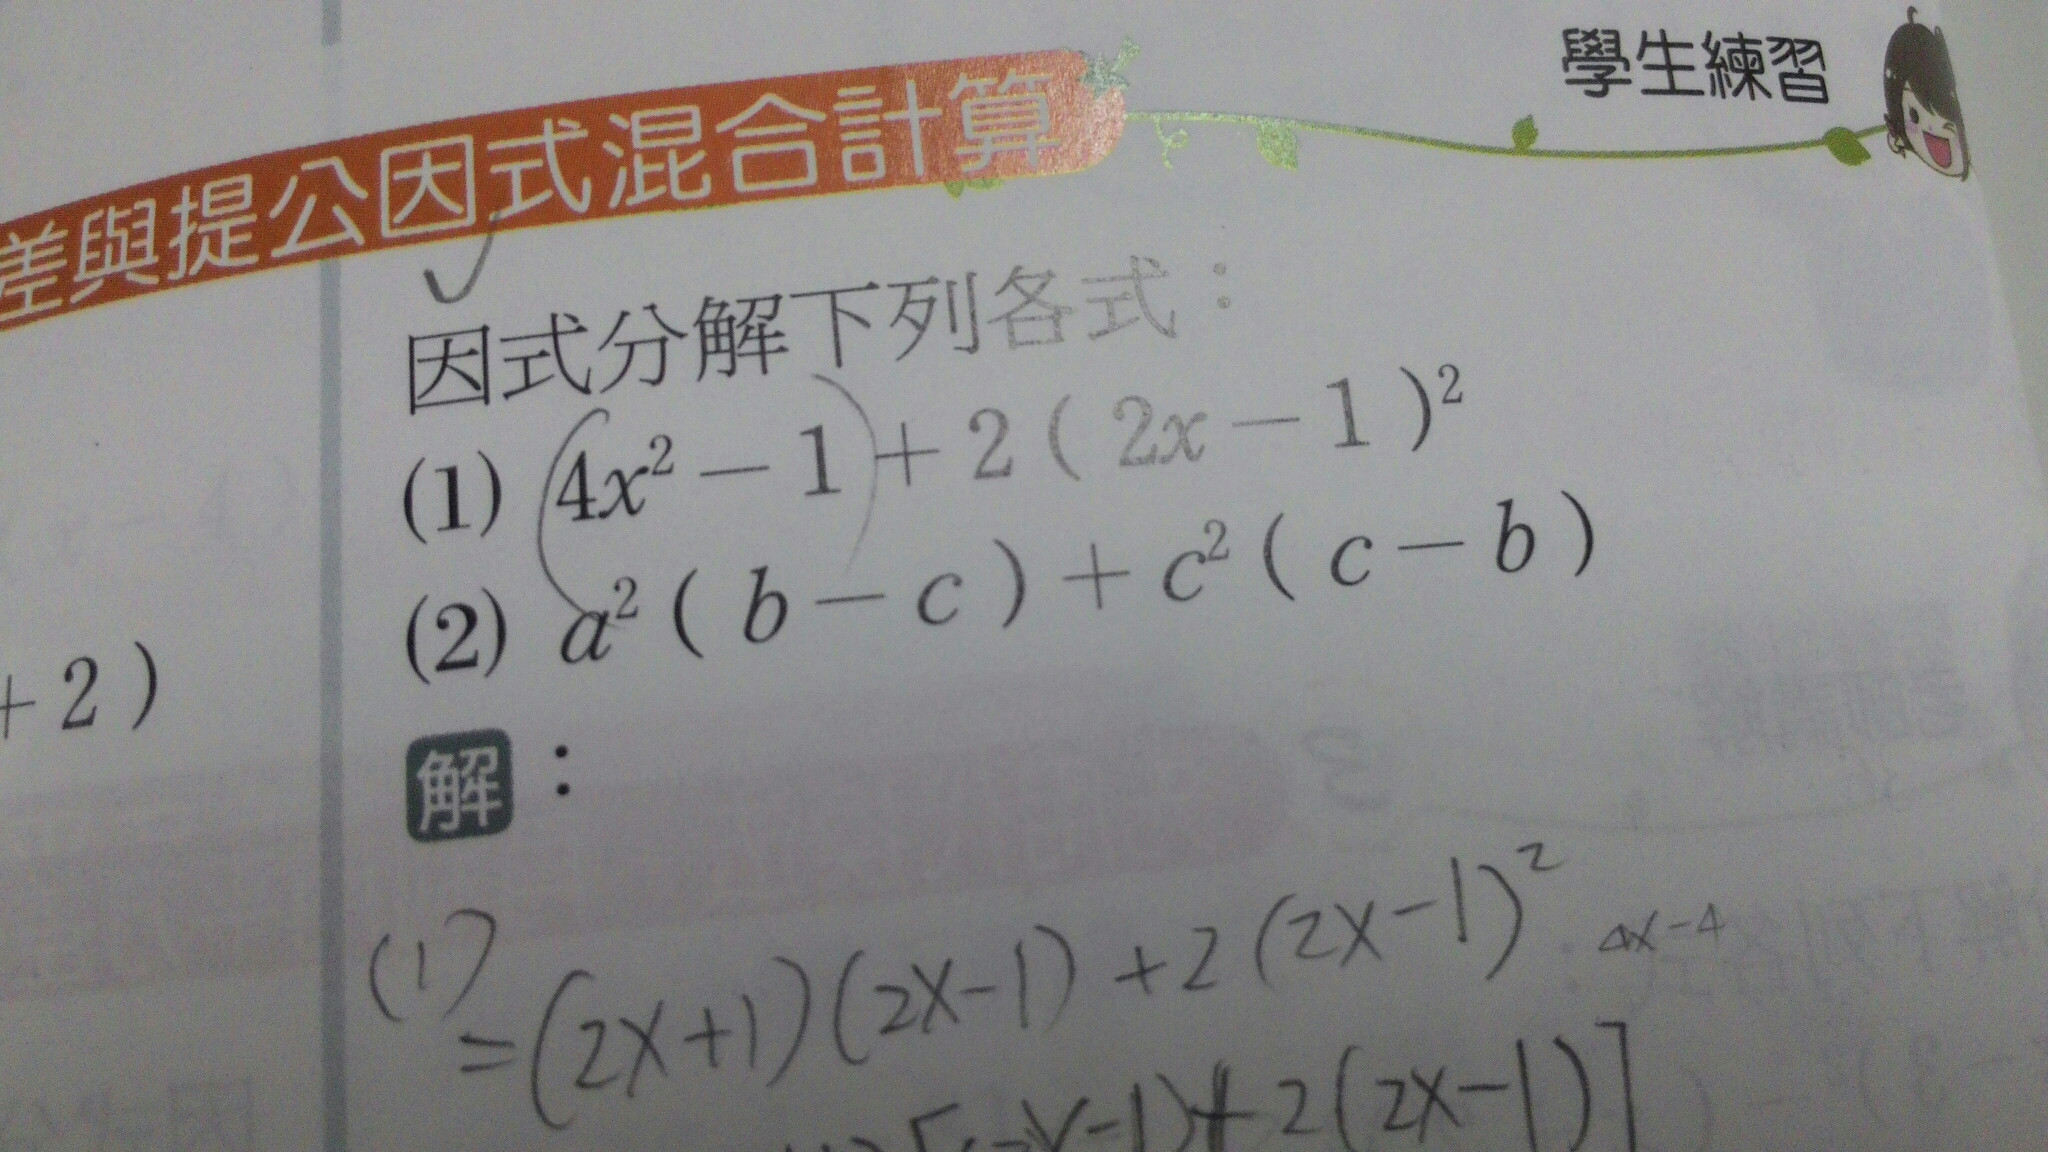 學生練習
差與提公因式混合計算
因式分解下列各式：
(1) 4x² － 1 ＋ 2 ( 2x － 1 )²
(2) a² ( b － c ) ＋ c² ( c － b )
+ 2 )
解：
(1)
= (2x+1)(2x-1) + 2(2x-1)²
4x-4
x-1)+2(2x-1)]